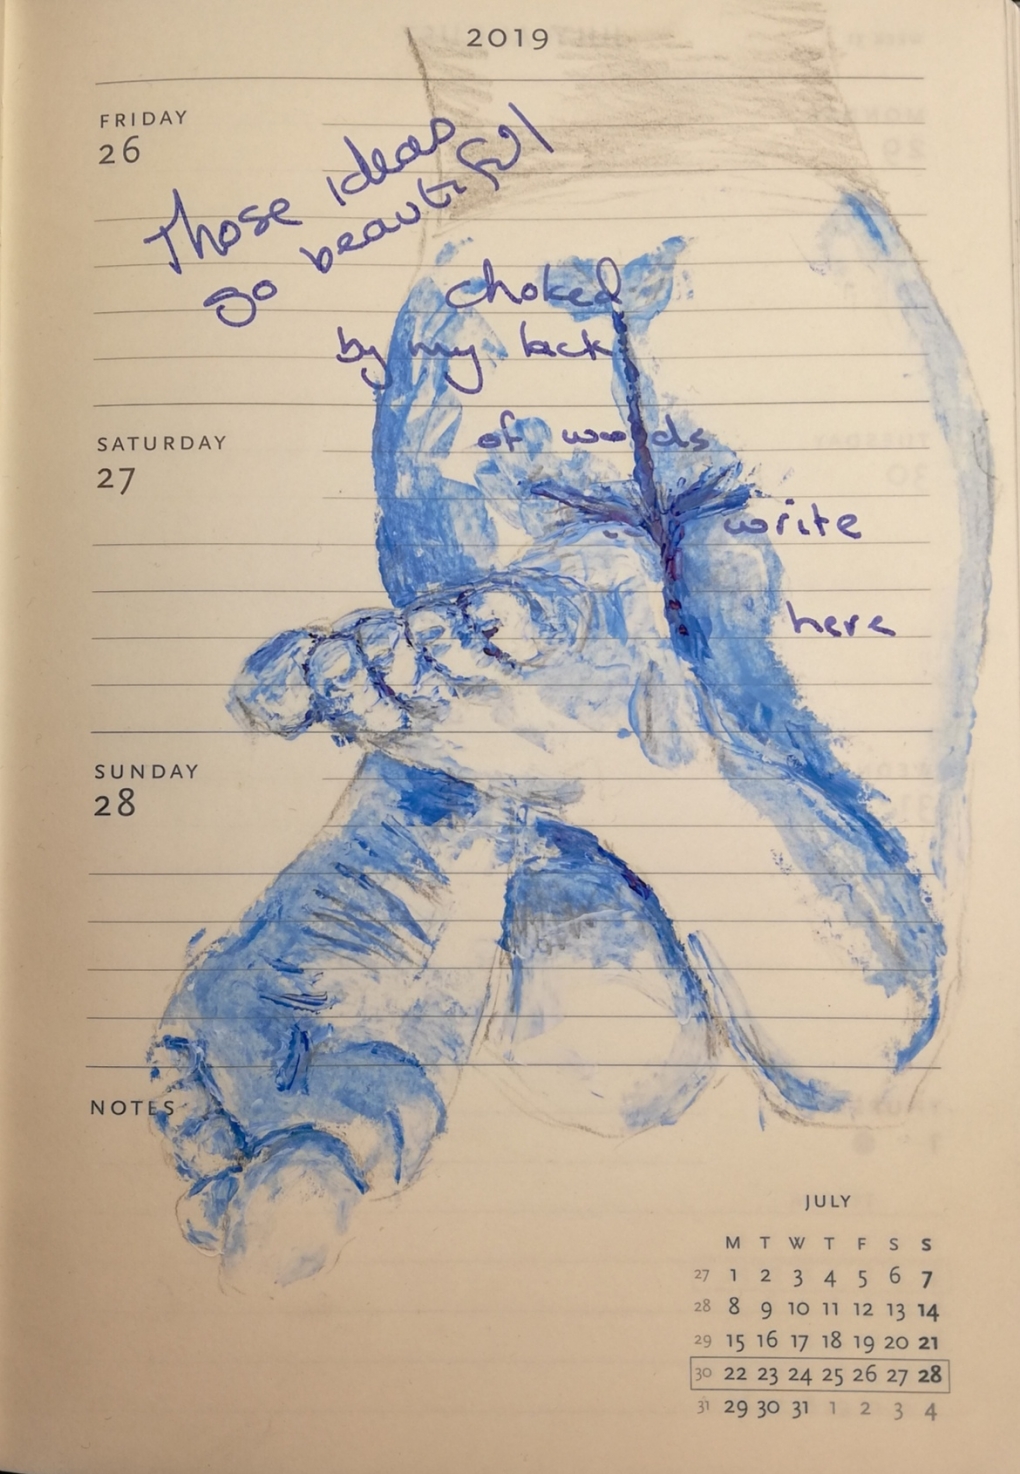 2019
FRIDAY
26
Those ideas
so beautiful
choked
by my lack
of words
SATURDAY
27
write
here
SUNDAY
28
NOTES
JULY
M T W T F S S
27 1 2 3 4 5 6 7
28 8 9 10 11 12 13 14
29 15 16 17 18 19 20 21
30 22 23 24 25 26 27 28
31 29 30 31 1 2 3 4